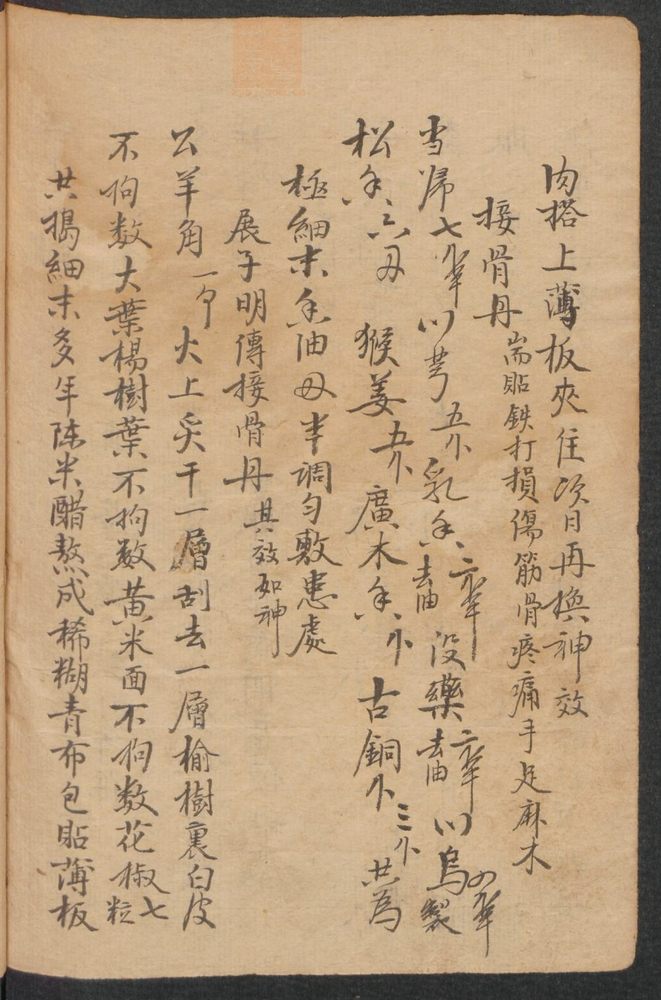 肉搭上薄板夾住次日再換神效
接骨丹 耑貼鉄打損傷筋骨疼痛手足麻木
当归七分半 川芎五分 乳香六分半去油 没藥六分半去油 川烏四分半製
松香六両 猴姜五分 廣木香一分 古銅小三分 共為
極細末香油両半調匀敷患處
展子明傳接骨丹 其效如神
公羊角一个 火上炙干一層刮去一層榆樹裏白皮
不拘数大葉楊樹葉不拘数黄米面不拘数花椒七粒
共搗細末多年陈米醋熬成稀糊青布包貼薄板